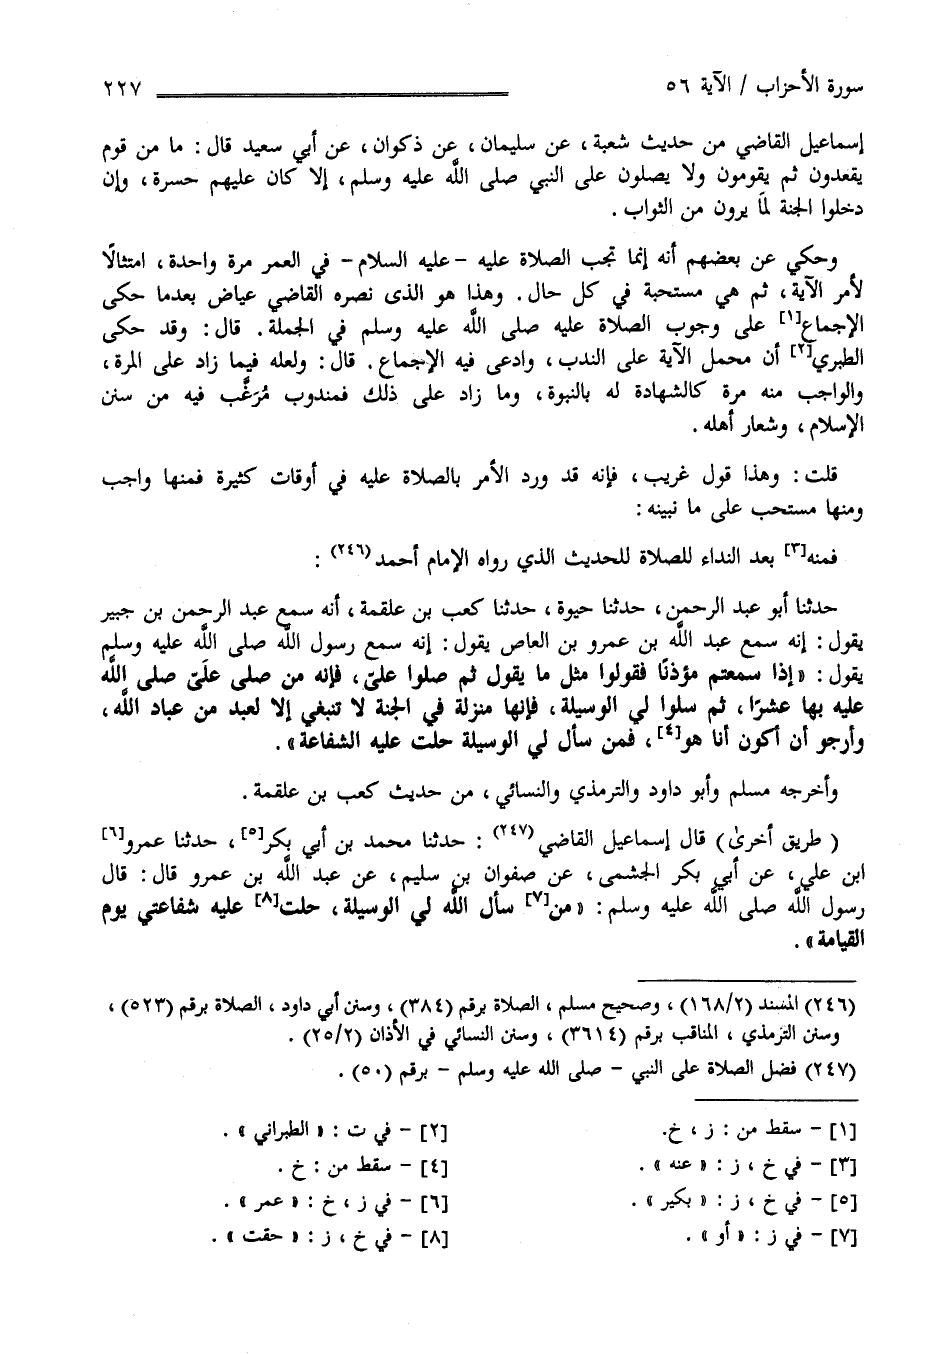 سورة الأحزاب / الآية ٥٦ ٢٢٧
إسماعيل القاضي من حديث شعبة ، عن سليمان ، عن ذكوان ، عن أبي سعيد قال : ما من قوم
يقعدون ثم يقومون ولا يصلون على النبي صلى الله عليه وسلم ، إلا كان عليهم حسرة ، وإن
دخلوا الجنة لمَا يرون من الثواب .
وحكي عن بعضهم أنه إنما تجب الصلاة عليه - عليه السلام - في العمر مرة واحدة ، امتثالًا
لأمر الآية ، ثم هي مستحبة في كل حال . وهذا هو الذى نصره القاضي عياض بعدما حكى
الإجماع[١] على وجوب الصلاة عليه صلى الله عليه وسلم في الجملة . قال : وقد حكى
الطبري[٢] أن محمل الآية على الندب ، وادعى فيه الإجماع . قال : ولعله فيما زاد على المرة ،
والواجب منه مرة كالشهادة له بالنبوة ، وما زاد على ذلك فمندوب مُرَغَّب فيه من سنن
الإسلام ، وشعار أهله .
قلت : وهذا قول غريب ، فإنه قد ورد الأمر بالصلاة عليه في أوقات كثيرة فمنها واجب
ومنها مستحب على ما نبينه :
فمنه[٣] بعد النداء للصلاة للحديث الذي رواه الإمام أحمد(٢٤٦) :
حدثنا أبو عبد الرحمن ، حدثنا حيوة ، حدثنا كعب بن علقمة ، أنه سمع عبد الرحمن بن جبير
يقول : إنه سمع عبد الله بن عمرو بن العاص يقول : إنه سمع رسول الله صلى الله عليه وسلم
يقول : « إذا سمعتم مؤذنًا فقولوا مثل ما يقول ثم صلوا عليّ ، فإنه من صلى علَيّ صلى الله
عليه بها عشرًا ، ثم سلوا لي الوسيلة ، فإنها منزلة في الجنة لا تنبغي إلا لعبد من عباد الله ،
وأرجو أن أكون أنا هو[٤] ، فمن سأل لي الوسيلة حلت عليه الشفاعة » .
وأخرجه مسلم وأبو داود والترمذي والنسائي ، من حديث كعب بن علقمة .
( طريق أخرىٰ ) قال إسماعيل القاضي(٢٤٧) : حدثنا محمد بن أبي بكر[٥] ، حدثنا عمرو[٦]
ابن علي ، عن أبي بكر الجشمى ، عن صفوان بن سليم ، عن عبد الله بن عمرو قال : قال
رسول الله صلى الله عليه وسلم : « من[٧] سأل الله لي الوسيلة ، حلت[٨] عليه شفاعتي يوم
القيامة » .
(٢٤٦) المسند (١٦٨/٢) ، وصحيح مسلم ، الصلاة برقم (٣٨٤) ، وسنن أبي داود ، الصلاة برقم (٥٢٣) ،
وسنن الترمذي ، المناقب برقم (٣٦١٤) ، وسنن النسائي في الأذان (٢٥/٢) .
(٢٤٧) فضل الصلاة على النبي - صلى الله عليه وسلم - برقم (٥٠) .
[١] - سقط من : ز ، خ. [٢] - في ت : « الطبراني » .
[٣] - في خ ، ز : « عنه » . [٤] - سقط من : خ .
[٥] - في خ ، ز : « بكير » . [٦] - في ز ، خ : « عمر » .
[٧] - في ز : « أو » . [٨] - في خ ، ز : « حقت » .